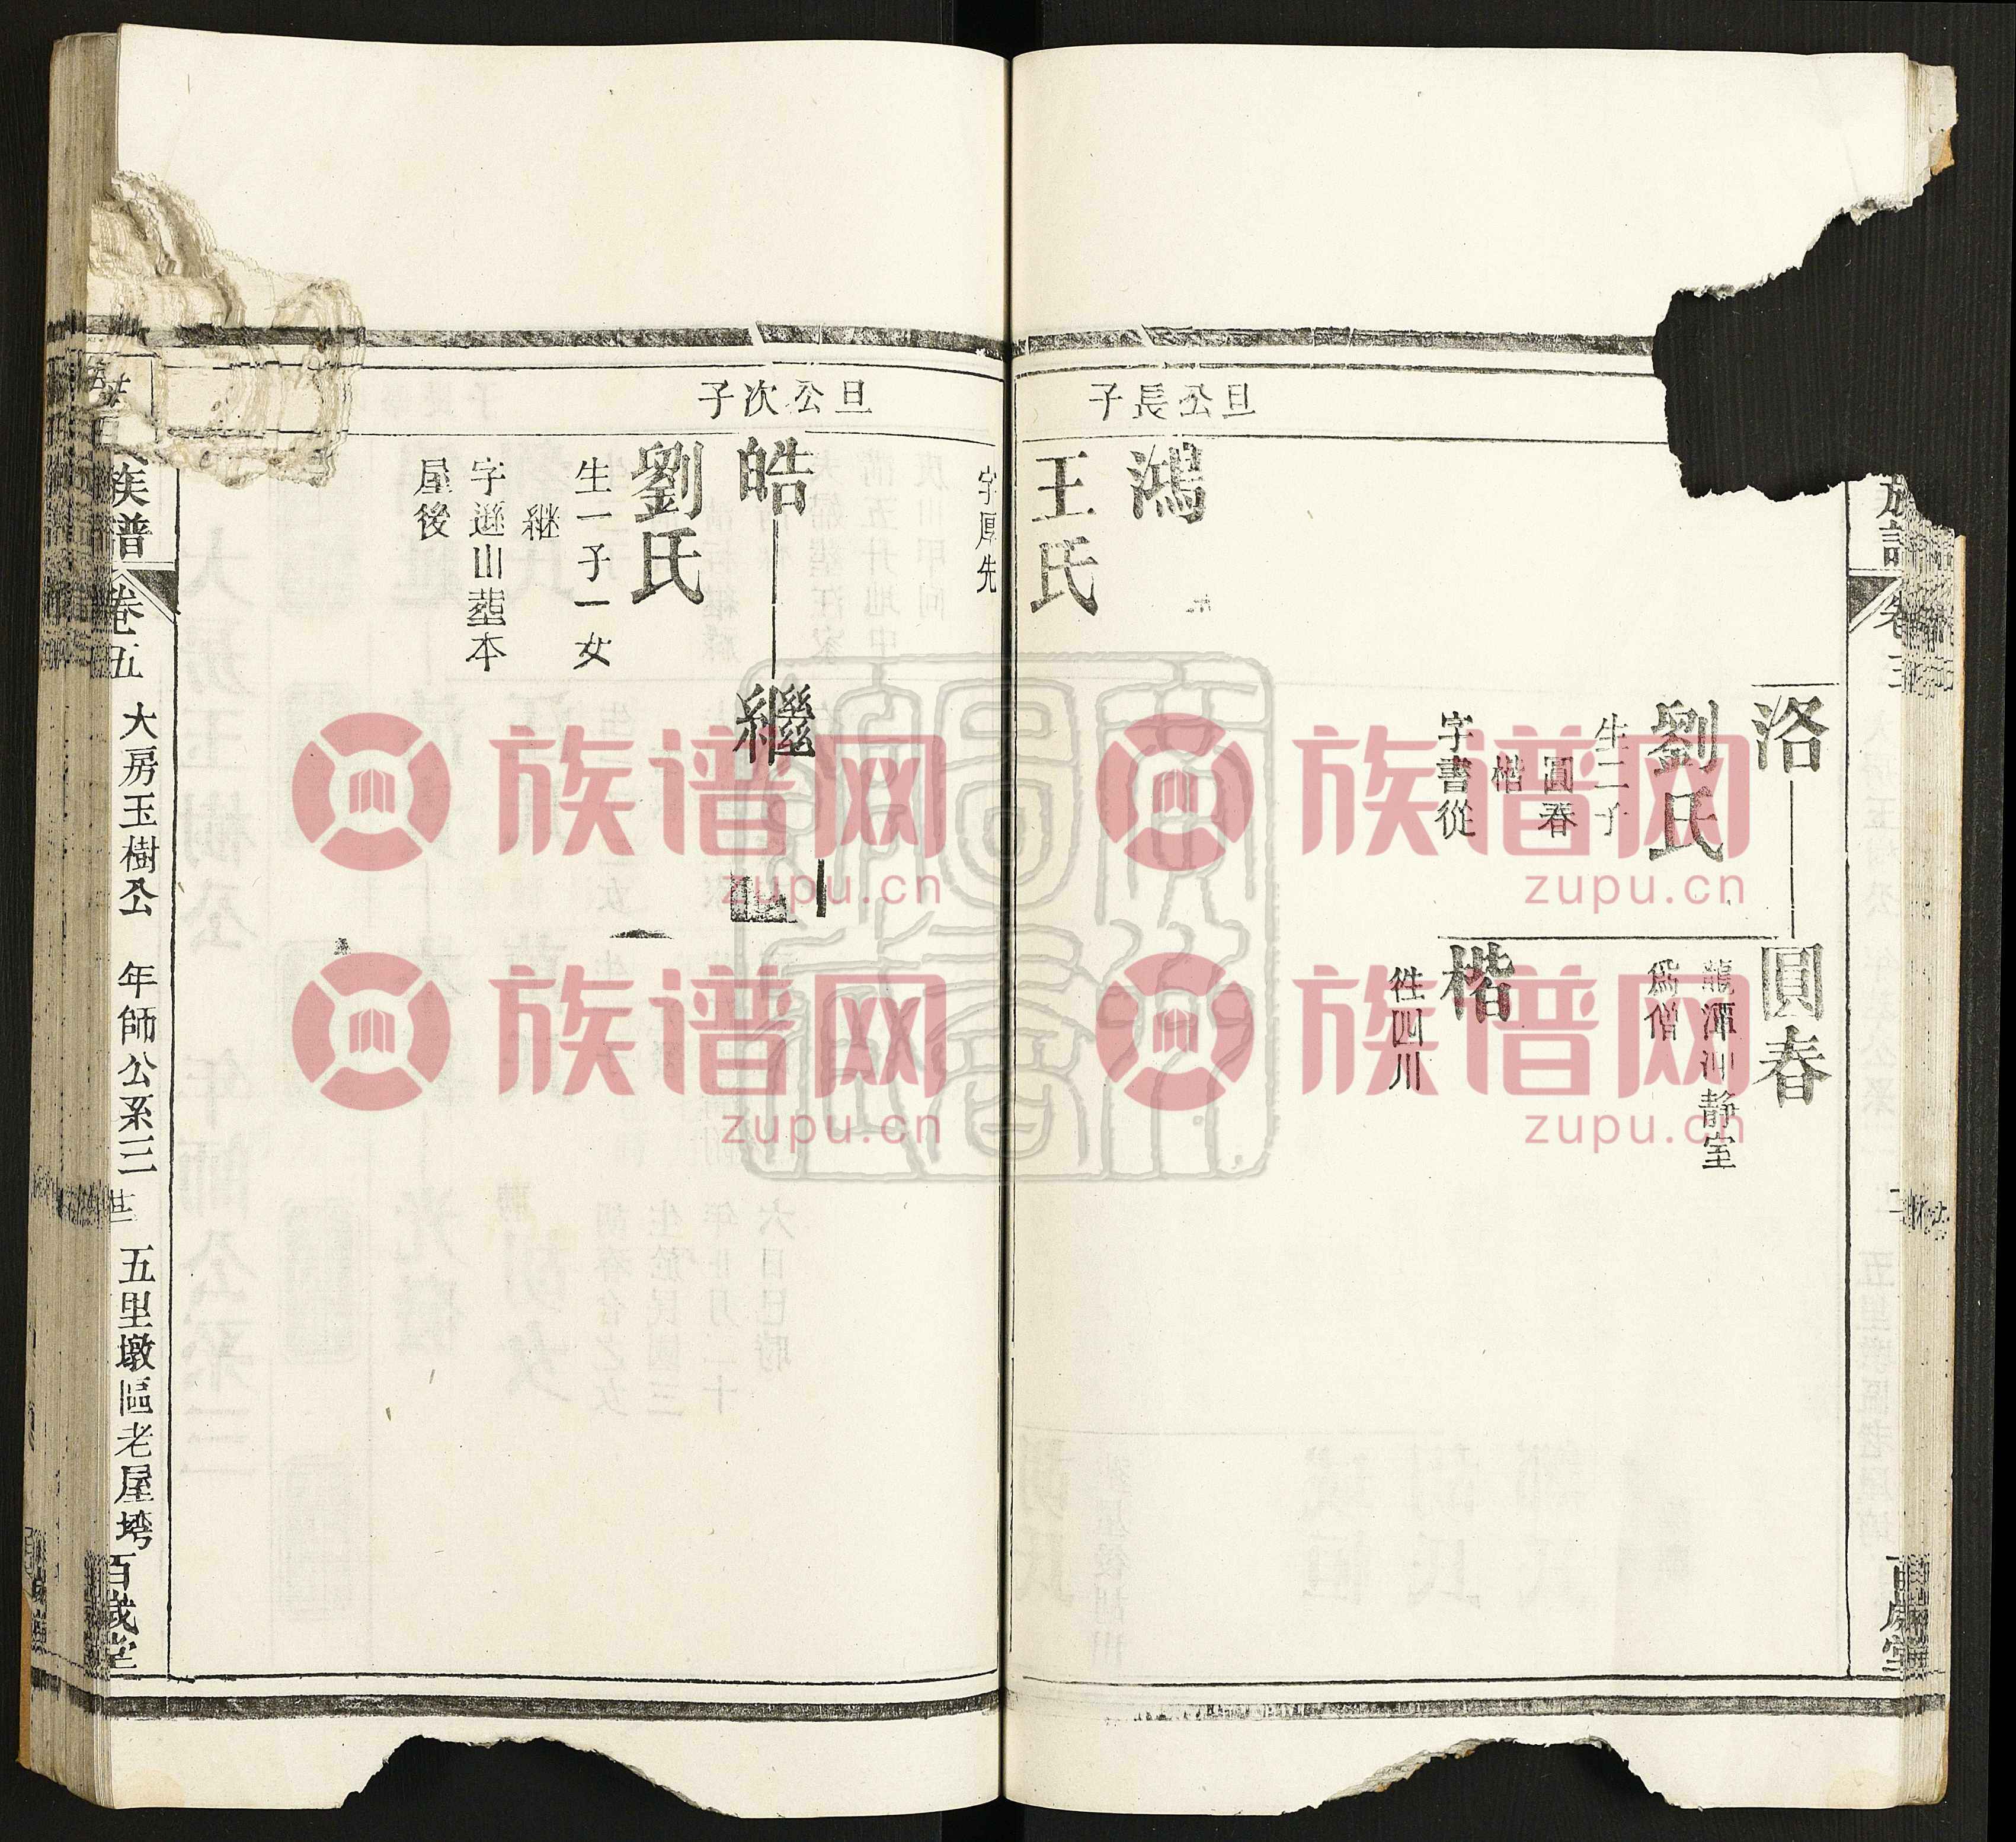 族譜
洛
劉氏
生二子
圓春
楷
字書從
圓春
龍潭洲靜室
爲僧
楷
往四川
旦公長子
鴻
王氏
字厚先
旦公次子
皓
繼
劉氏
生一子一女
継
字遜山塟本
屋後
族譜
卷五
大房玉樹公
年師公系三
廿二
五里墩區老屋塆
百歲堂
族谱网
zupu.cn
族谱网
zupu.cn
族谱网
zupu.cn
族谱网
zupu.cn